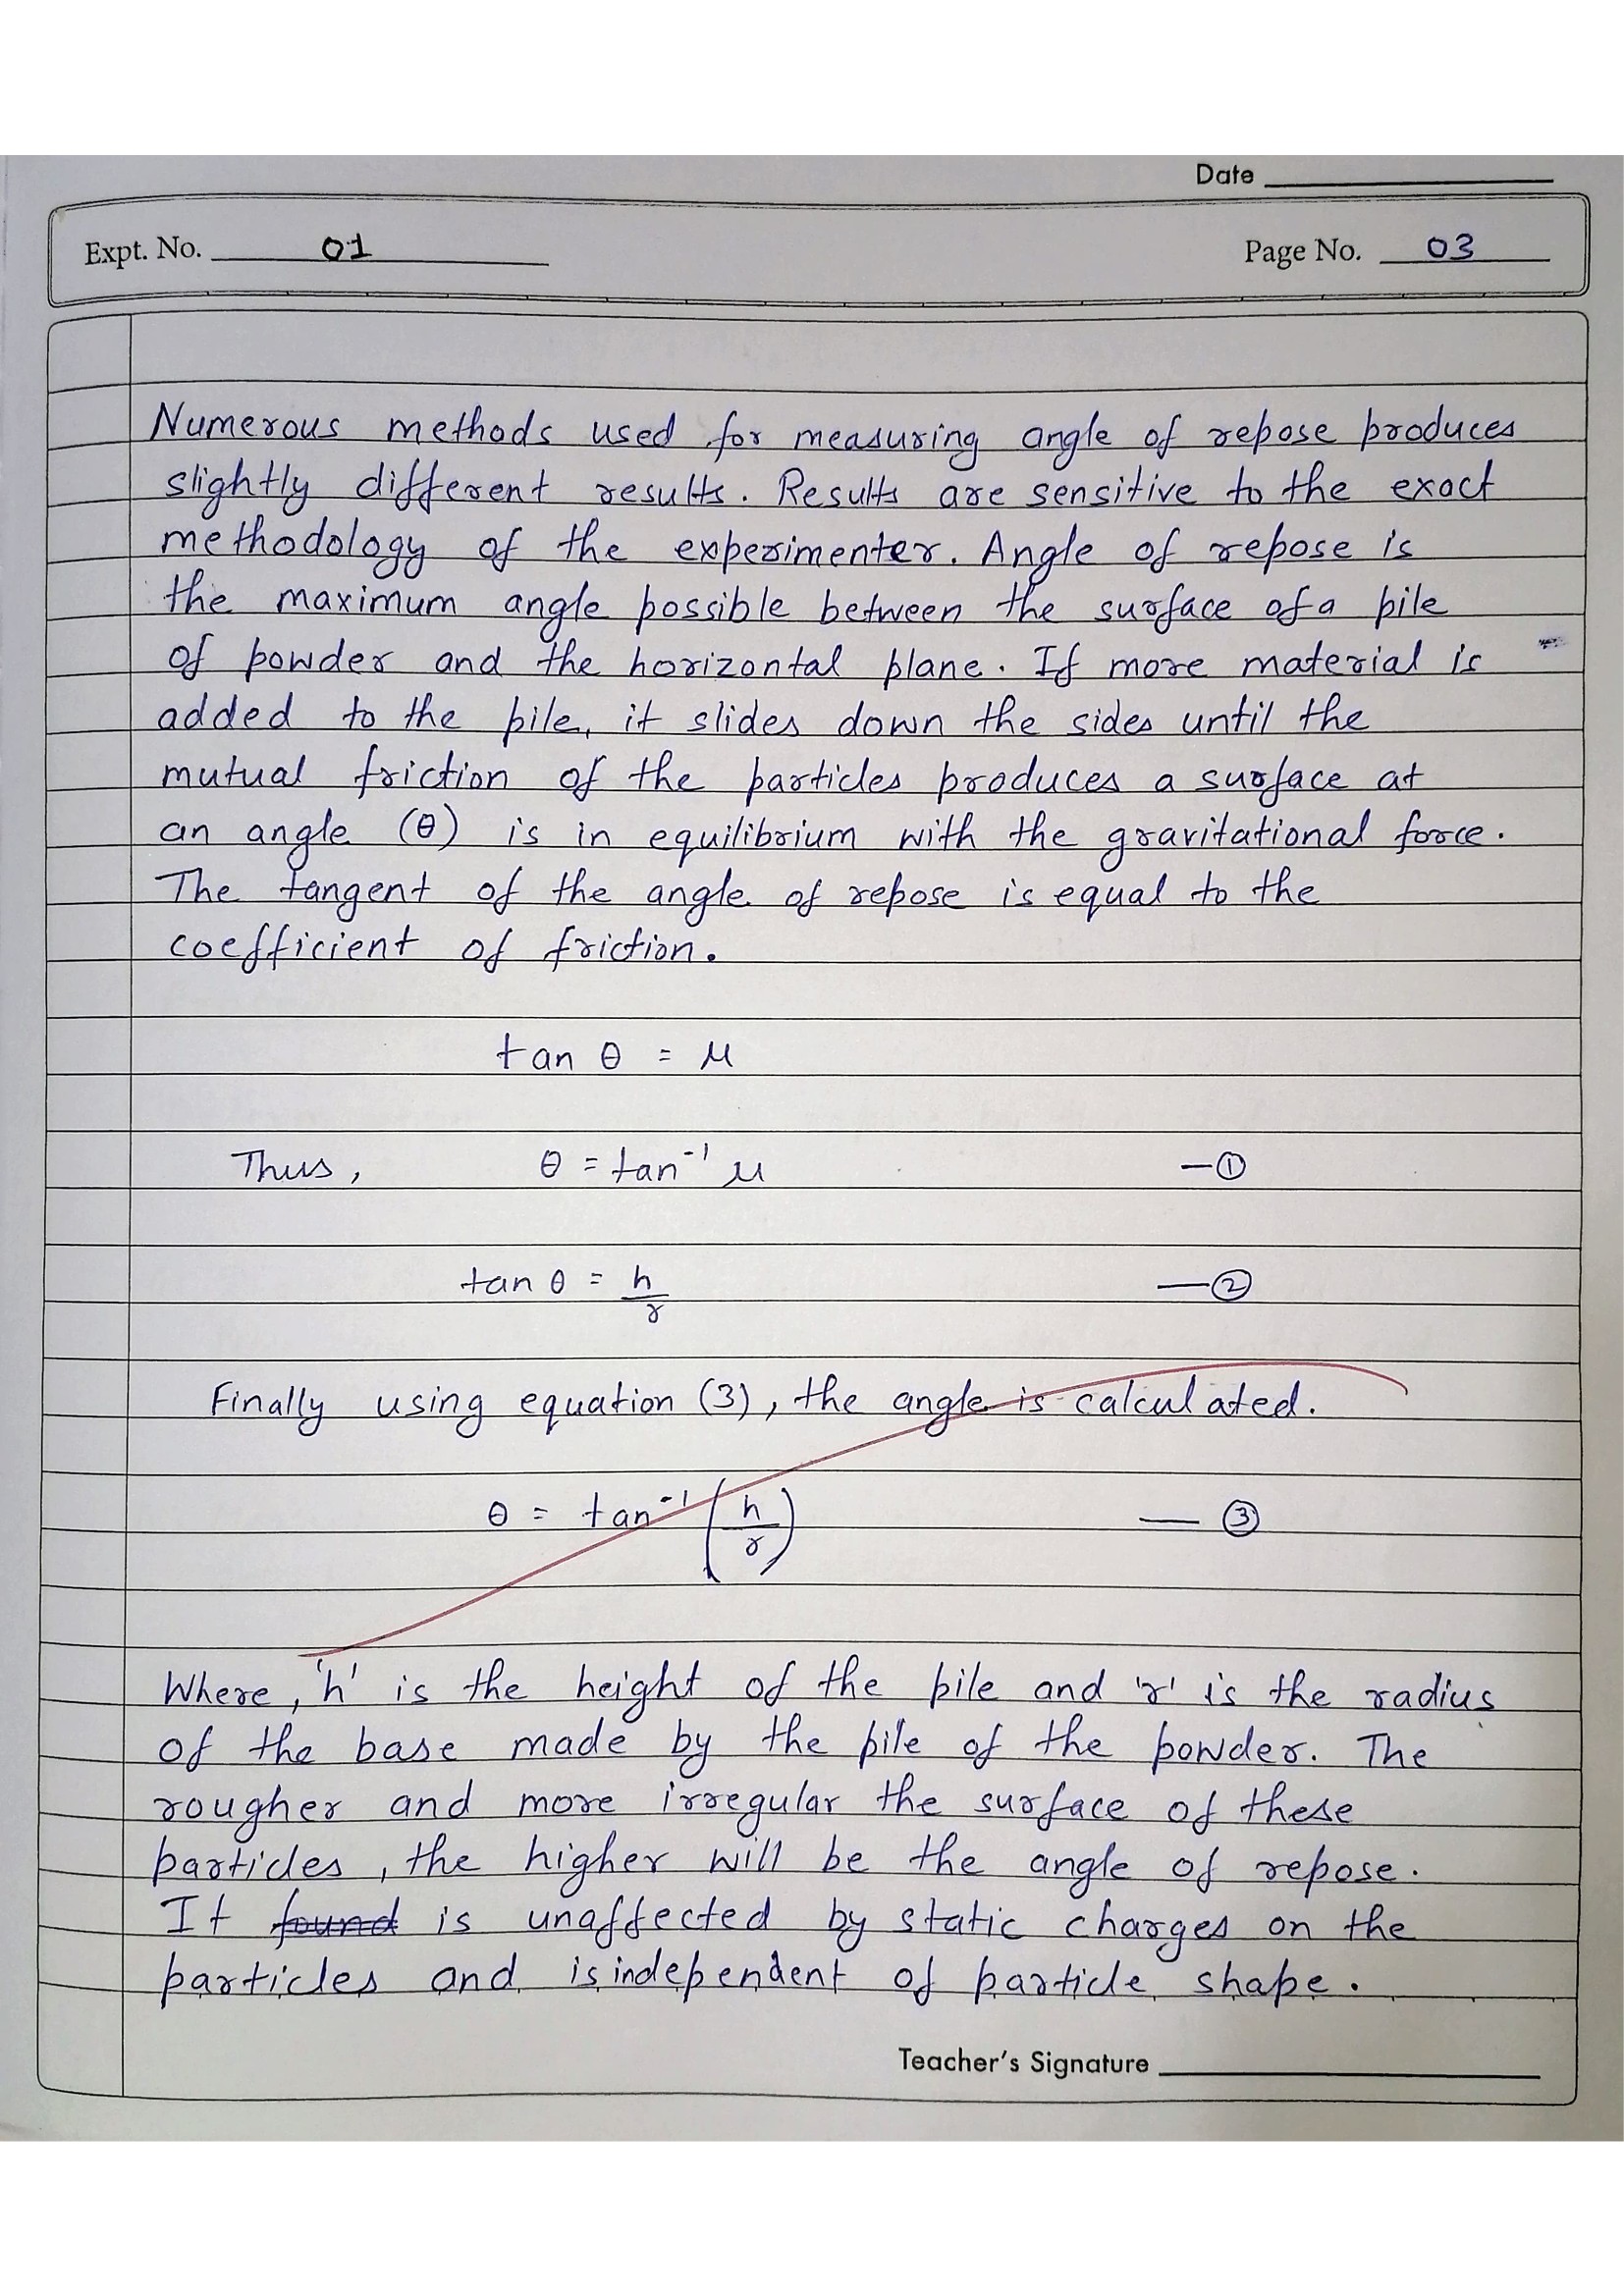 Date
Expt. No. 01
Page No. 03
Numerous methods used for measuring angle of repose produces
slightly different results. Results are sensitive to the exact
methodology of the experimenter. Angle of repose is
the maximum angle possible between the surface of a pile
of powder and the horizontal plane. If more material is
added to the pile, it slides down the sides until the
mutual friction of the particles produces a surface at
an angle (θ) is in equilibrium with the gravitational force.
The tangent of the angle of repose is equal to the
coefficient of friction.
tan θ = μ
Thus, θ = tan⁻¹ μ —①
tan θ = h/r —②
Finally using equation (3), the angle is calculated.
θ = tan⁻¹ (h/r) — ③
Where, 'h' is the height of the pile and 'r' is the radius
of the base made by the pile of the powder. The
rougher and more irregular the surface of these
particles, the higher will be the angle of repose.
It found is unaffected by static charges on the
particles and is independent of particle shape.
Teacher's Signature